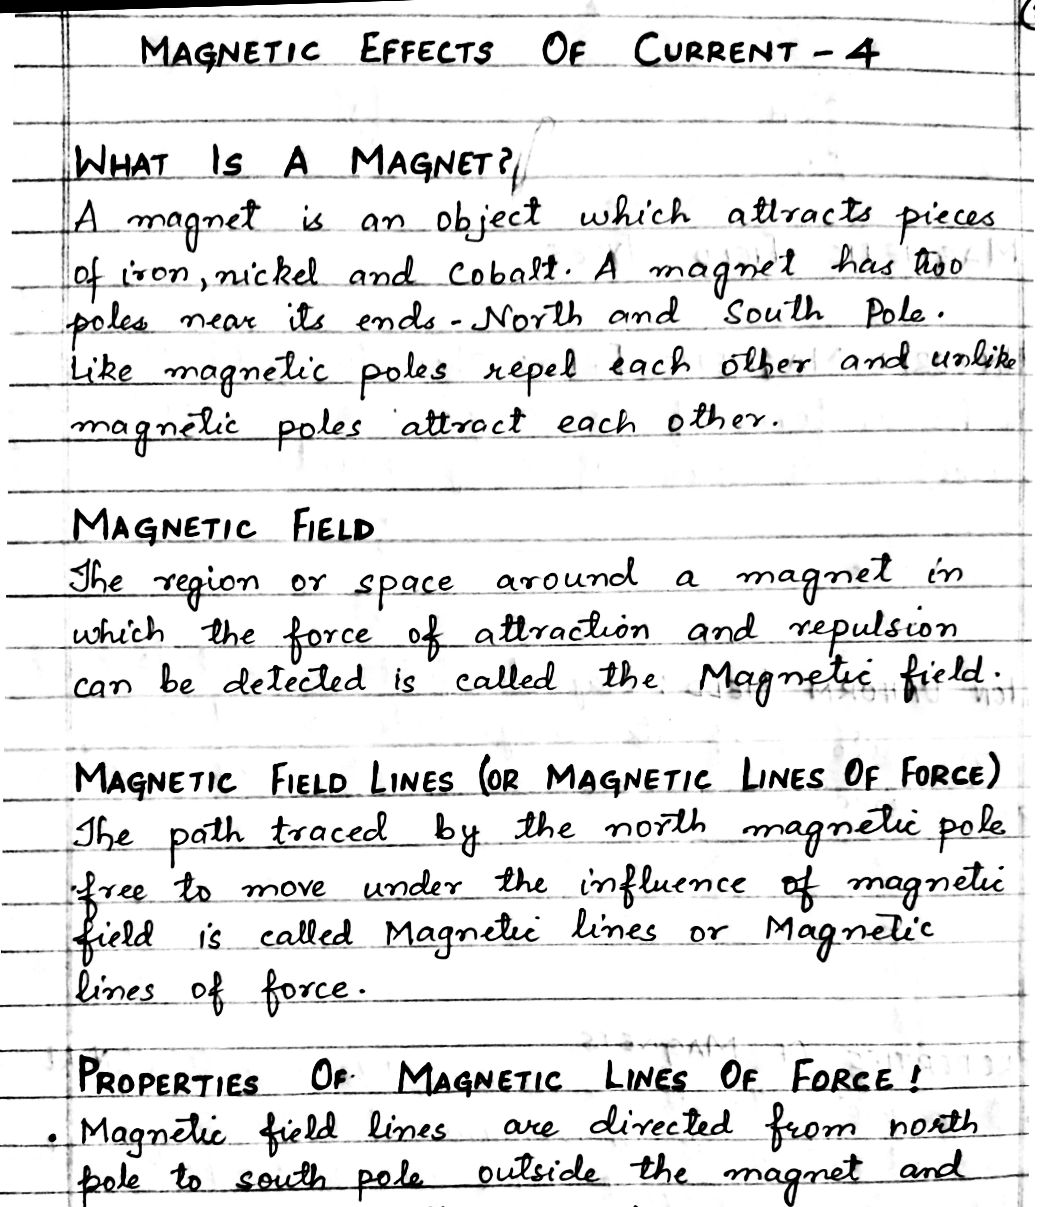 MAGNETIC EFFECTS OF CURRENT - 4
WHAT IS A MAGNET?
A magnet is an object which attracts pieces
of iron, nickel and cobalt. A magnet has two
poles near its ends - North and South Pole.
Like magnetic poles repel each other and unlike
magnetic poles attract each other.
MAGNETIC FIELD
The region or space around a magnet in
which the force of attraction and repulsion
can be detected is called the Magnetic field.
MAGNETIC FIELD LINES (OR MAGNETIC LINES OF FORCE)
The path traced by the north magnetic pole
free to move under the influence of magnetic
field is called Magnetic lines or Magnetic
lines of force.
PROPERTIES OF MAGNETIC LINES OF FORCE!
• Magnetic field lines are directed from north
pole to south pole outside the magnet and